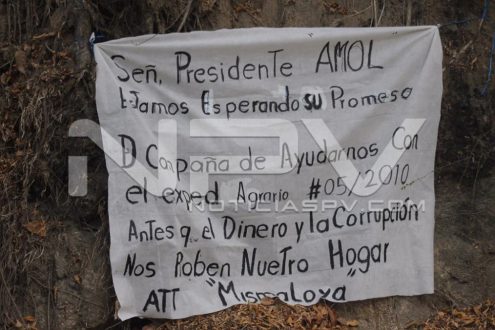 Señ, Presidente AMOL
Estamos Esperando su Promesa
D Campaña de Ayudarnos Con
el exped Agrario #05/2010
Antes q el Dinero y la Corrupción
Nos Roben Nuetro Hogar
ATT "Mismaloya"
NPV
NOTICIASPV.COM